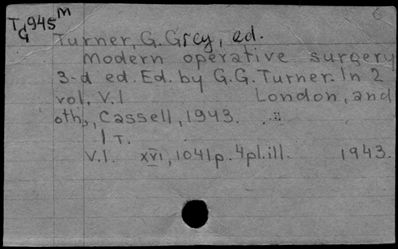 T945M
G
Turner, G. Grey, ed.
Modern operative surgery
3-d ed. Ed. by G.G. Turner. In 2
vol. V.1 London, and
oth., Cassell, 1943.
1 T.
V.1. XVI, 1041p. 4pl. ill. 1943.